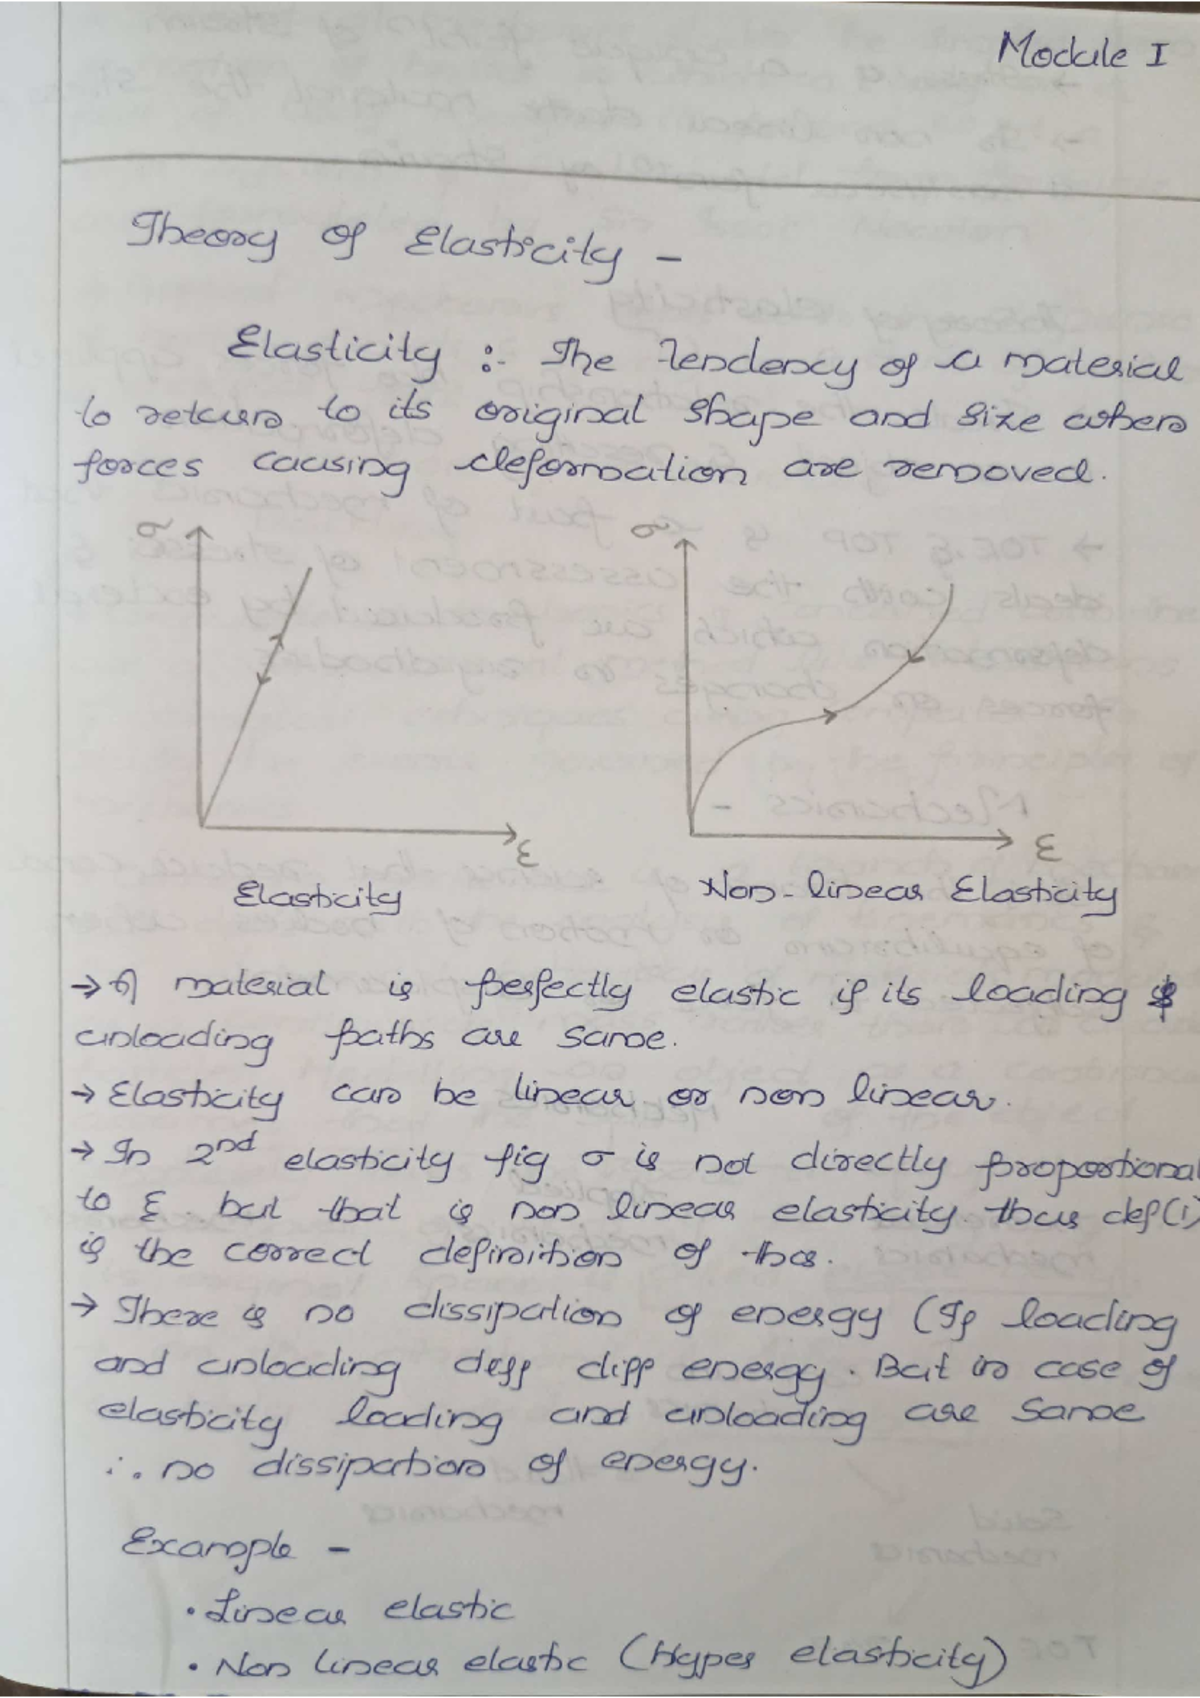 Module I
Theory of Elasticity -
Elasticity :- The Tendency of a material
to return to its original shape and size when
forces causing deformation are removed.
σ
σ
ε
ε
Elasticity
Non-linear Elasticity
→ A material is perfectly elastic if its loading &
unloading paths are same.
→ Elasticity can be linear or non linear.
→ In 2nd elasticity fig σ is not directly proportional
to ε. but that is non linear elasticity. thus def(i)
is the correct definition of this.
→ There is no dissipation of energy (If loading
and unloading diff energy. But in case of
elasticity loading and unloading are same
∴ no dissipation of energy.
Example -
• Linear elastic
• Non linear elastic (Hyper elasticity)